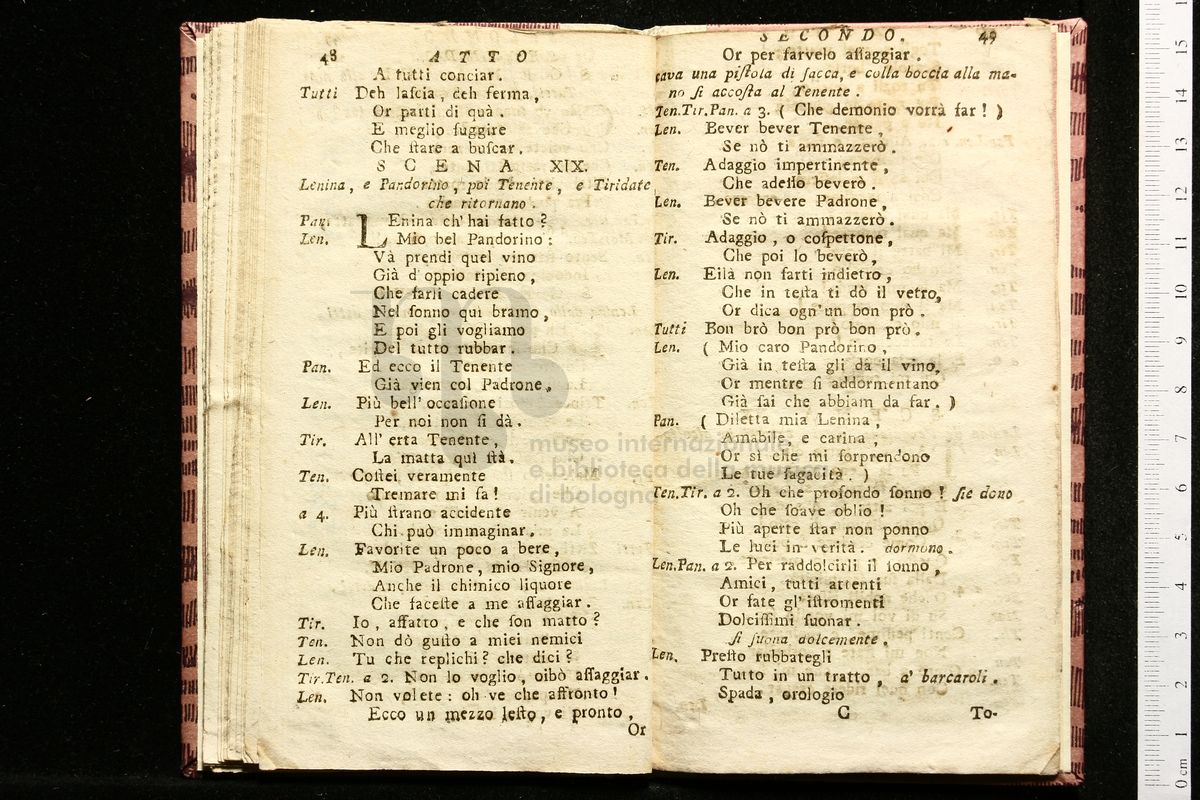 48 ATTO
A tutti conciar.
Tutti Deh laſcia, deh ferma,
Or parti di quà.
E meglio fuggire
Che ſtare a buſcar.
SCENA XIX.
Lenina, e Pandorino, poi Tenente, e Tiridate
che ritornano.
Pan. LEnina ch' hai fatto?
Len. Mio bel Pandorino:
Và prendi quel vino
Già d'oppio ripieno,
Che farli cadere
Nel ſonno quì bramo,
E poi gli vogliamo
Del tutto rubbar.
Pan. Ed ecco il Tenente
Già vien col Padrone,
Len. Più bell' occaſione
Per noi non ſi dà.
Tir. All' erta Tenente,
La matta quì ſtà.
Ten. Coſtei veramente
Tremare mi fa!
a 4. Più ſtrano accidente
Chi può immaginar.
Len. Favorite un poco a bere,
Mio Padrone, mio Signore,
Anche il chimico liquore
Che faceſte a me aſſaggiar.
Tir. Io, affatto, e che ſon matto?
Ten. Non dò guſto a miei nemici
Len. Tu che replichi? che dici?
Tir.Ten. a 2. Non lo voglio, oibò aſſaggiar.
Len. Non volete: oh ve che affronto!
Ecco un mezzo leſto, e pronto,
Or
SECONDO. 49
Or per farvelo aſſaggiar.
cava una piſtola di ſacca, e colla boccia alla ma-
no ſi accoſta al Tenente.
Ten.Tir.Pan. a 3. ( Che demonio vorrà far! )
Len. Bever bever Tenente,
Se nò ti ammazzerò.
Ten. Adaggio impertinente,
Che adeſſo beverò.
Len. Bever bevere Padrone,
Se nò ti ammazzerò.
Tir. Adaggio, o coſpettone,
Che poi lo beverò,
Len. Eilà non farti indietro,
Che in teſta ti dò il vetro,
Or dica ogn'un bon prò.
Tutti Bon brò bon prò bon prò.
Len. ( Mio caro Pandorino,
Già in teſta gli dà il vino,
Or mentre ſi addormentano
Già ſai che abbiam da far. )
Pan. ( Diletta mia Lenina,
Amabile, e carina,
Or sì che mi ſorprendono
Le tue ſagacità. )
Ten.Tir. a 2. Oh che profondo ſonno! ſie dono
Oh che ſoave oblio!
Più aperte ſtar non ponno
Le luci in verità. dormono.
Len.Pan. a 2. Per raddolcirli il ſonno,
Amici, tutti attenti
Or fate gl' iſtromenti
Dolciſſimi ſuonar.
ſi ſuona dolcemente.
Len. Preſto rubbategli
Tutto in un tratto, a' barcaroli.
Spada, orologio
C To-
museo internazionale
e biblioteca della musica
di bologna
0 cm 1 2 3 4 5 6 7 8 9 10 11 12 13 14 15